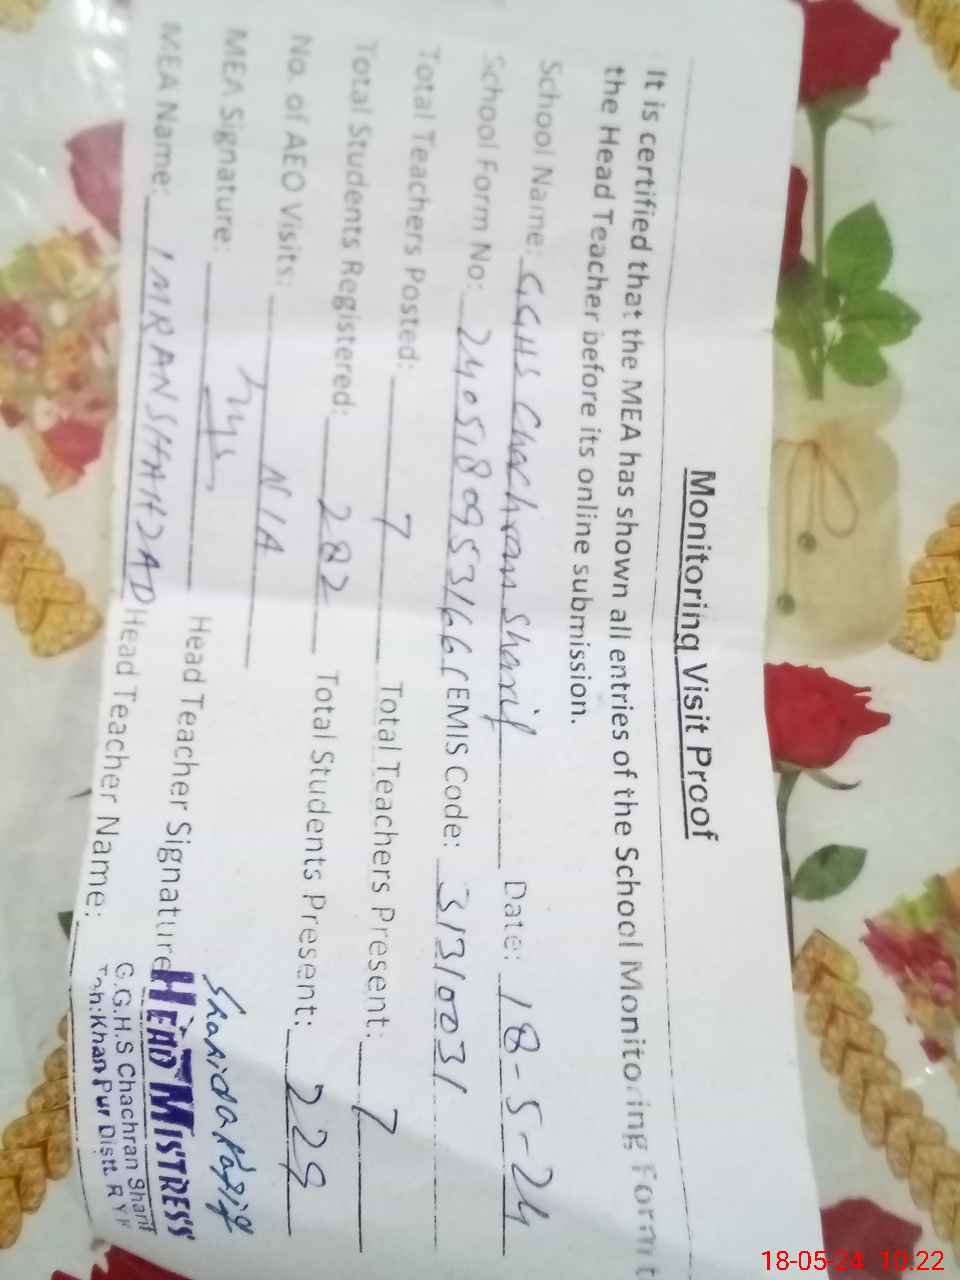 Monitoring Visit Proof
It is certified that the MEA has shown all entries of the School Monitoring Form t
the Head Teacher before its online submission.
School Name: GGHS Chachran Sharif Date: 18-5-24
School Form No: EMIS Code: 31310031
Total Teachers Posted: 7 Total Teachers Present: 7
Total Students Registered: 282 Total Students Present:
No. of AEO Visits: N/A
MEA Signature: Head Teacher Signature
MEA Name: IMRAN SHAHZAD Head Teacher Name:
HEAD MISTRESS
G.G.H.S Chachran Sharif
Teh:Khan Pur Distt. R Y K
18-05-24 10:22